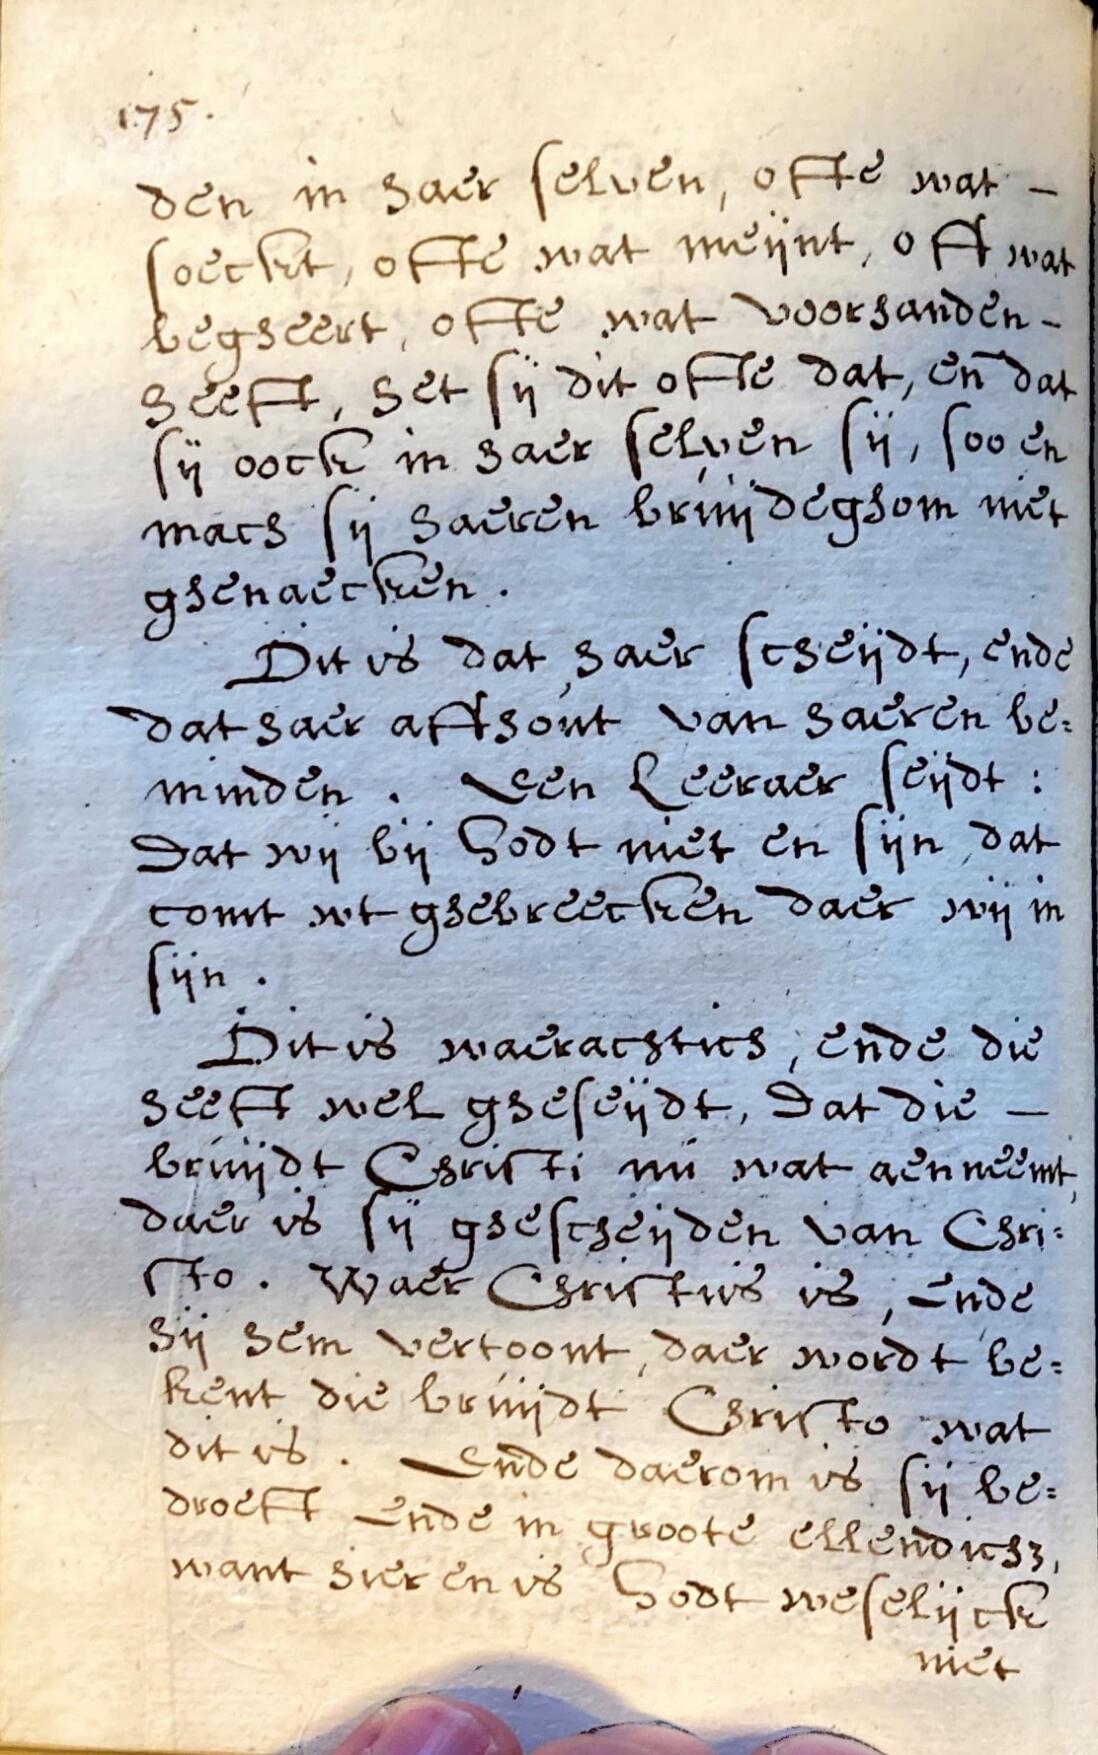 175.
den in haer selven, ofte wat –
soeckt, ofte wat meijnt, oft wat
begheert, ofte wat voorhanden –
heeft, het sij dit ofte dat, en̄ dat
sij oock in haer selven sij, soo en
mach sij haeren bruijdeghom niet
ghenaecken.
Dit is dat haer scheijdt, ende
dat haer affhout van haeren be=
minden. Een Leeraer seijdt:
Dat wij bij Godt niet en sijn dat
comt wt ghebreecken daer wij in
sijn.
Dit is waerachtich, ende die
heeft wel gheseijdt, Dat die –
bruijdt Christi nu wat aenneemt,
daer is sij ghescheijden van Chri=
sto. Waer Christus is, Ende
hij hem vertoont, daer wordt be=
kent die bruijdt Christo wat
dit is. Ende daerom is sij be=
droeft Ende in groote ellendich3,
want hier en is Godt weselijck
niet